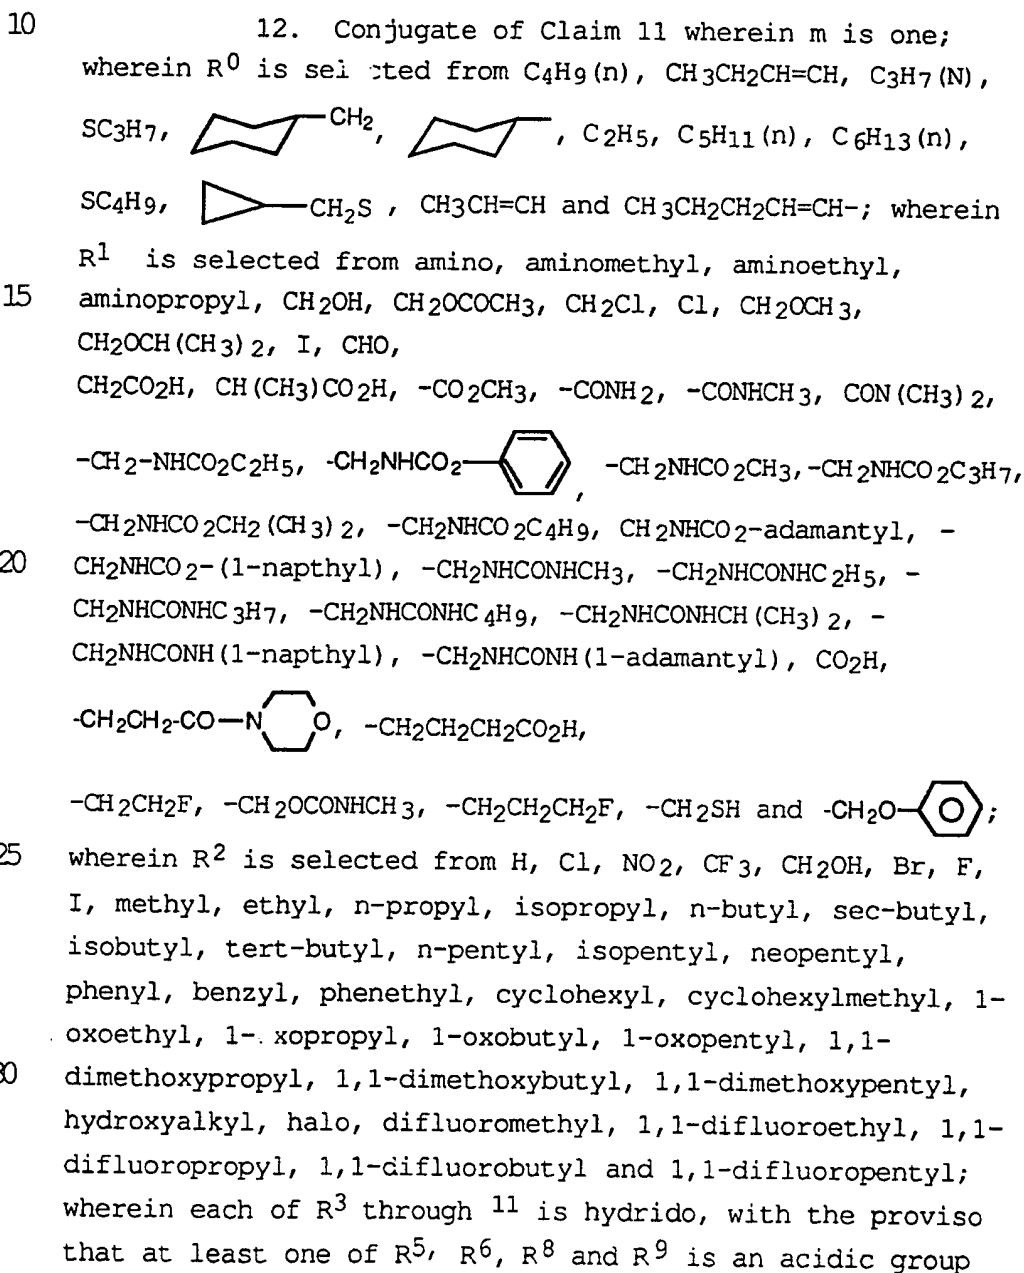 10 12. Conjugate of Claim 11 wherein m is one;
wherein R⁰ is sel cted from C₄H₉(n), CH₃CH₂CH=CH, C₃H₇(N),
SC₃H₇, CH₂, , C₂H₅, C₅H₁₁(n), C₆H₁₃(n),
SC₄H₉, CH₂S , CH₃CH=CH and CH₃CH₂CH₂CH=CH-; wherein
R¹ is selected from amino, aminomethyl, aminoethyl,
15 aminopropyl, CH₂OH, CH₂OCOCH₃, CH₂Cl, Cl, CH₂OCH₃,
CH₂OCH(CH₃)₂, I, CHO,
CH₂CO₂H, CH(CH₃)CO₂H, -CO₂CH₃, -CONH₂, -CONHCH₃, CON(CH₃)₂,
-CH₂-NHCO₂C₂H₅, -CH₂NHCO₂ , -CH₂NHCO₂CH₃, -CH₂NHCO₂C₃H₇,
-CH₂NHCO₂CH₂(CH₃)₂, -CH₂NHCO₂C₄H₉, CH₂NHCO₂-adamantyl, -
20 CH₂NHCO₂-(1-napthyl), -CH₂NHCONHCH₃, -CH₂NHCONHC₂H₅, -
CH₂NHCONHC₃H₇, -CH₂NHCONHC₄H₉, -CH₂NHCONHCH(CH₃)₂, -
CH₂NHCONH(1-napthyl), -CH₂NHCONH(1-adamantyl), CO₂H,
-CH₂CH₂-CO-N O, -CH₂CH₂CH₂CO₂H,
-CH₂CH₂F, -CH₂OCONHCH₃, -CH₂CH₂CH₂F, -CH₂SH and -CH₂O- ;
25 wherein R² is selected from H, Cl, NO₂, CF₃, CH₂OH, Br, F,
I, methyl, ethyl, n-propyl, isopropyl, n-butyl, sec-butyl,
isobutyl, tert-butyl, n-pentyl, isopentyl, neopentyl,
phenyl, benzyl, phenethyl, cyclohexyl, cyclohexylmethyl, 1-
oxoethyl, 1- xopropyl, 1-oxobutyl, 1-oxopentyl, 1,1-
30 dimethoxypropyl, 1,1-dimethoxybutyl, 1,1-dimethoxypentyl,
hydroxyalkyl, halo, difluoromethyl, 1,1-difluoroethyl, 1,1-
difluoropropyl, 1,1-difluorobutyl and 1,1-difluoropentyl;
wherein each of R³ through ¹¹ is hydrido, with the proviso
that at least one of R⁵, R⁶, R⁸ and R⁹ is an acidic group